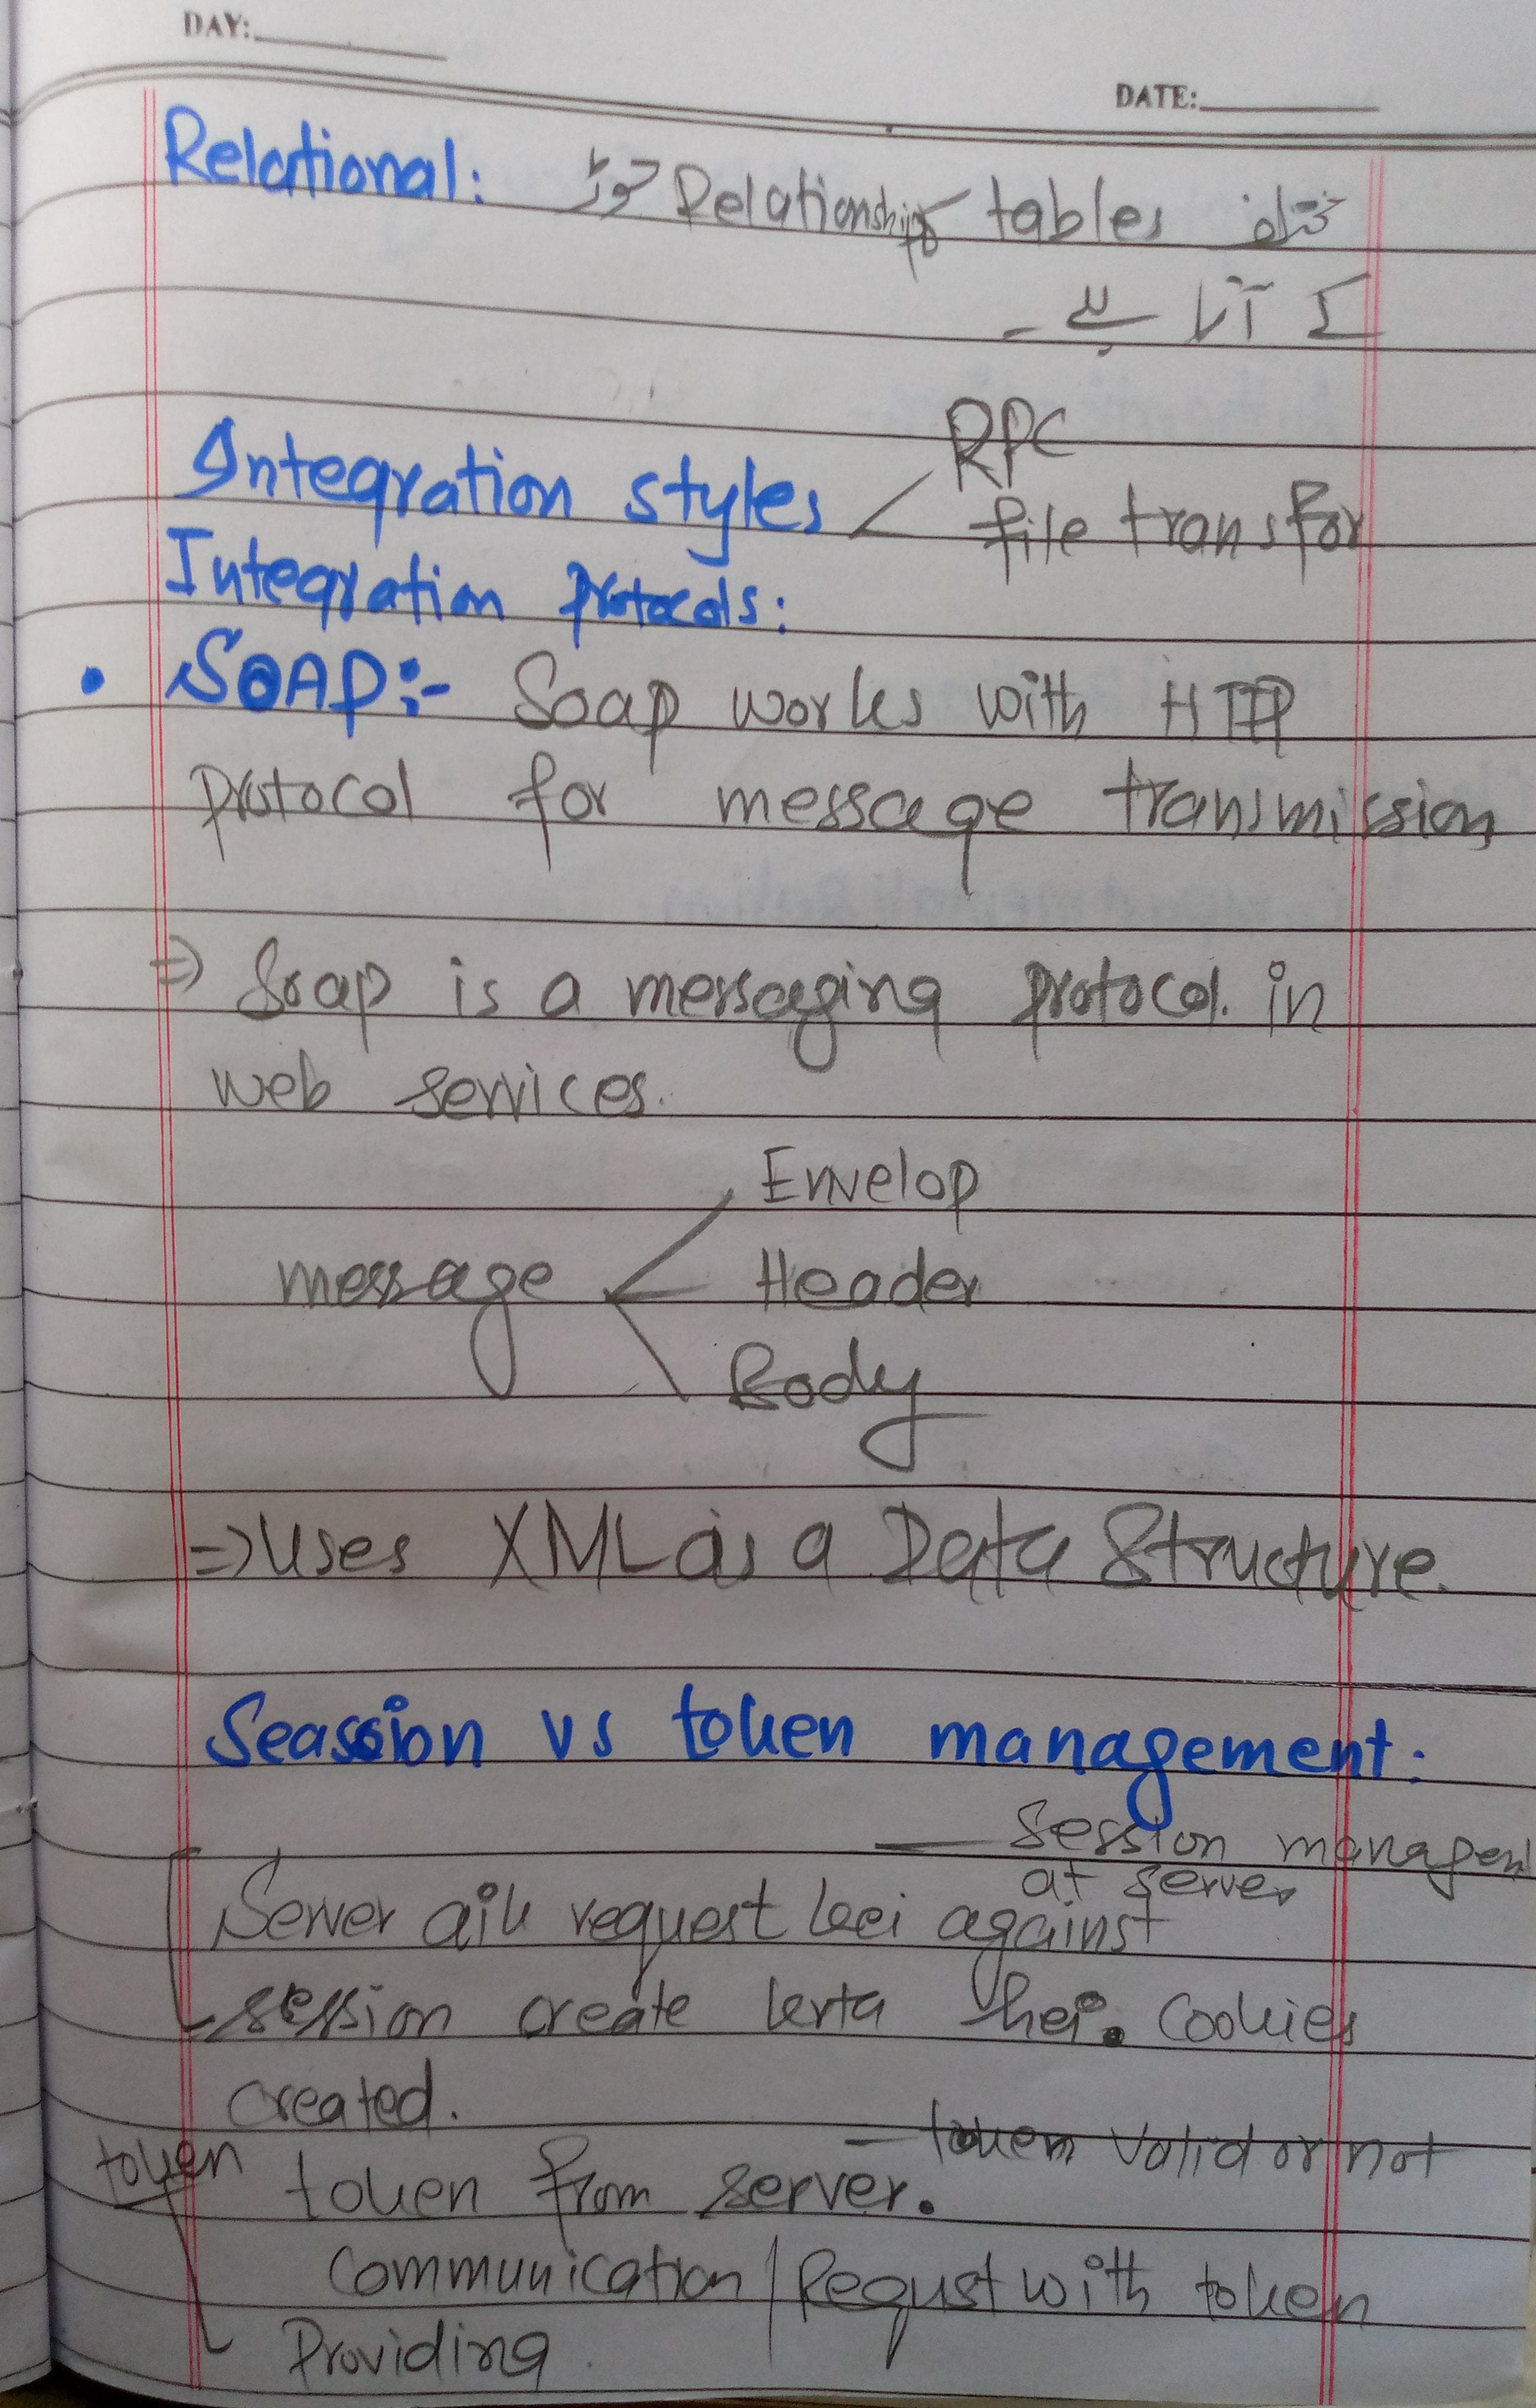 DAY:
DATE:
Relational: مختلف tables کا Relationship جوڑ
کے آتا ہے ۔
Integration styles < RPC
file transfor
Integration protocols:
• SOAP:- Soap works with HTTP
protocol for message transmission
⇒ Soap is a messaging protocol. in
web services.
Envelop
message < Header
Body
⇒ Uses XML as a Data Structure.
Seassion vs token management:
— Session managem
at server
Server aik request kei against
session create kerta hei. Cookies
created.
— token valid or not
token token from server.
Communication / Requst with token
Providing.